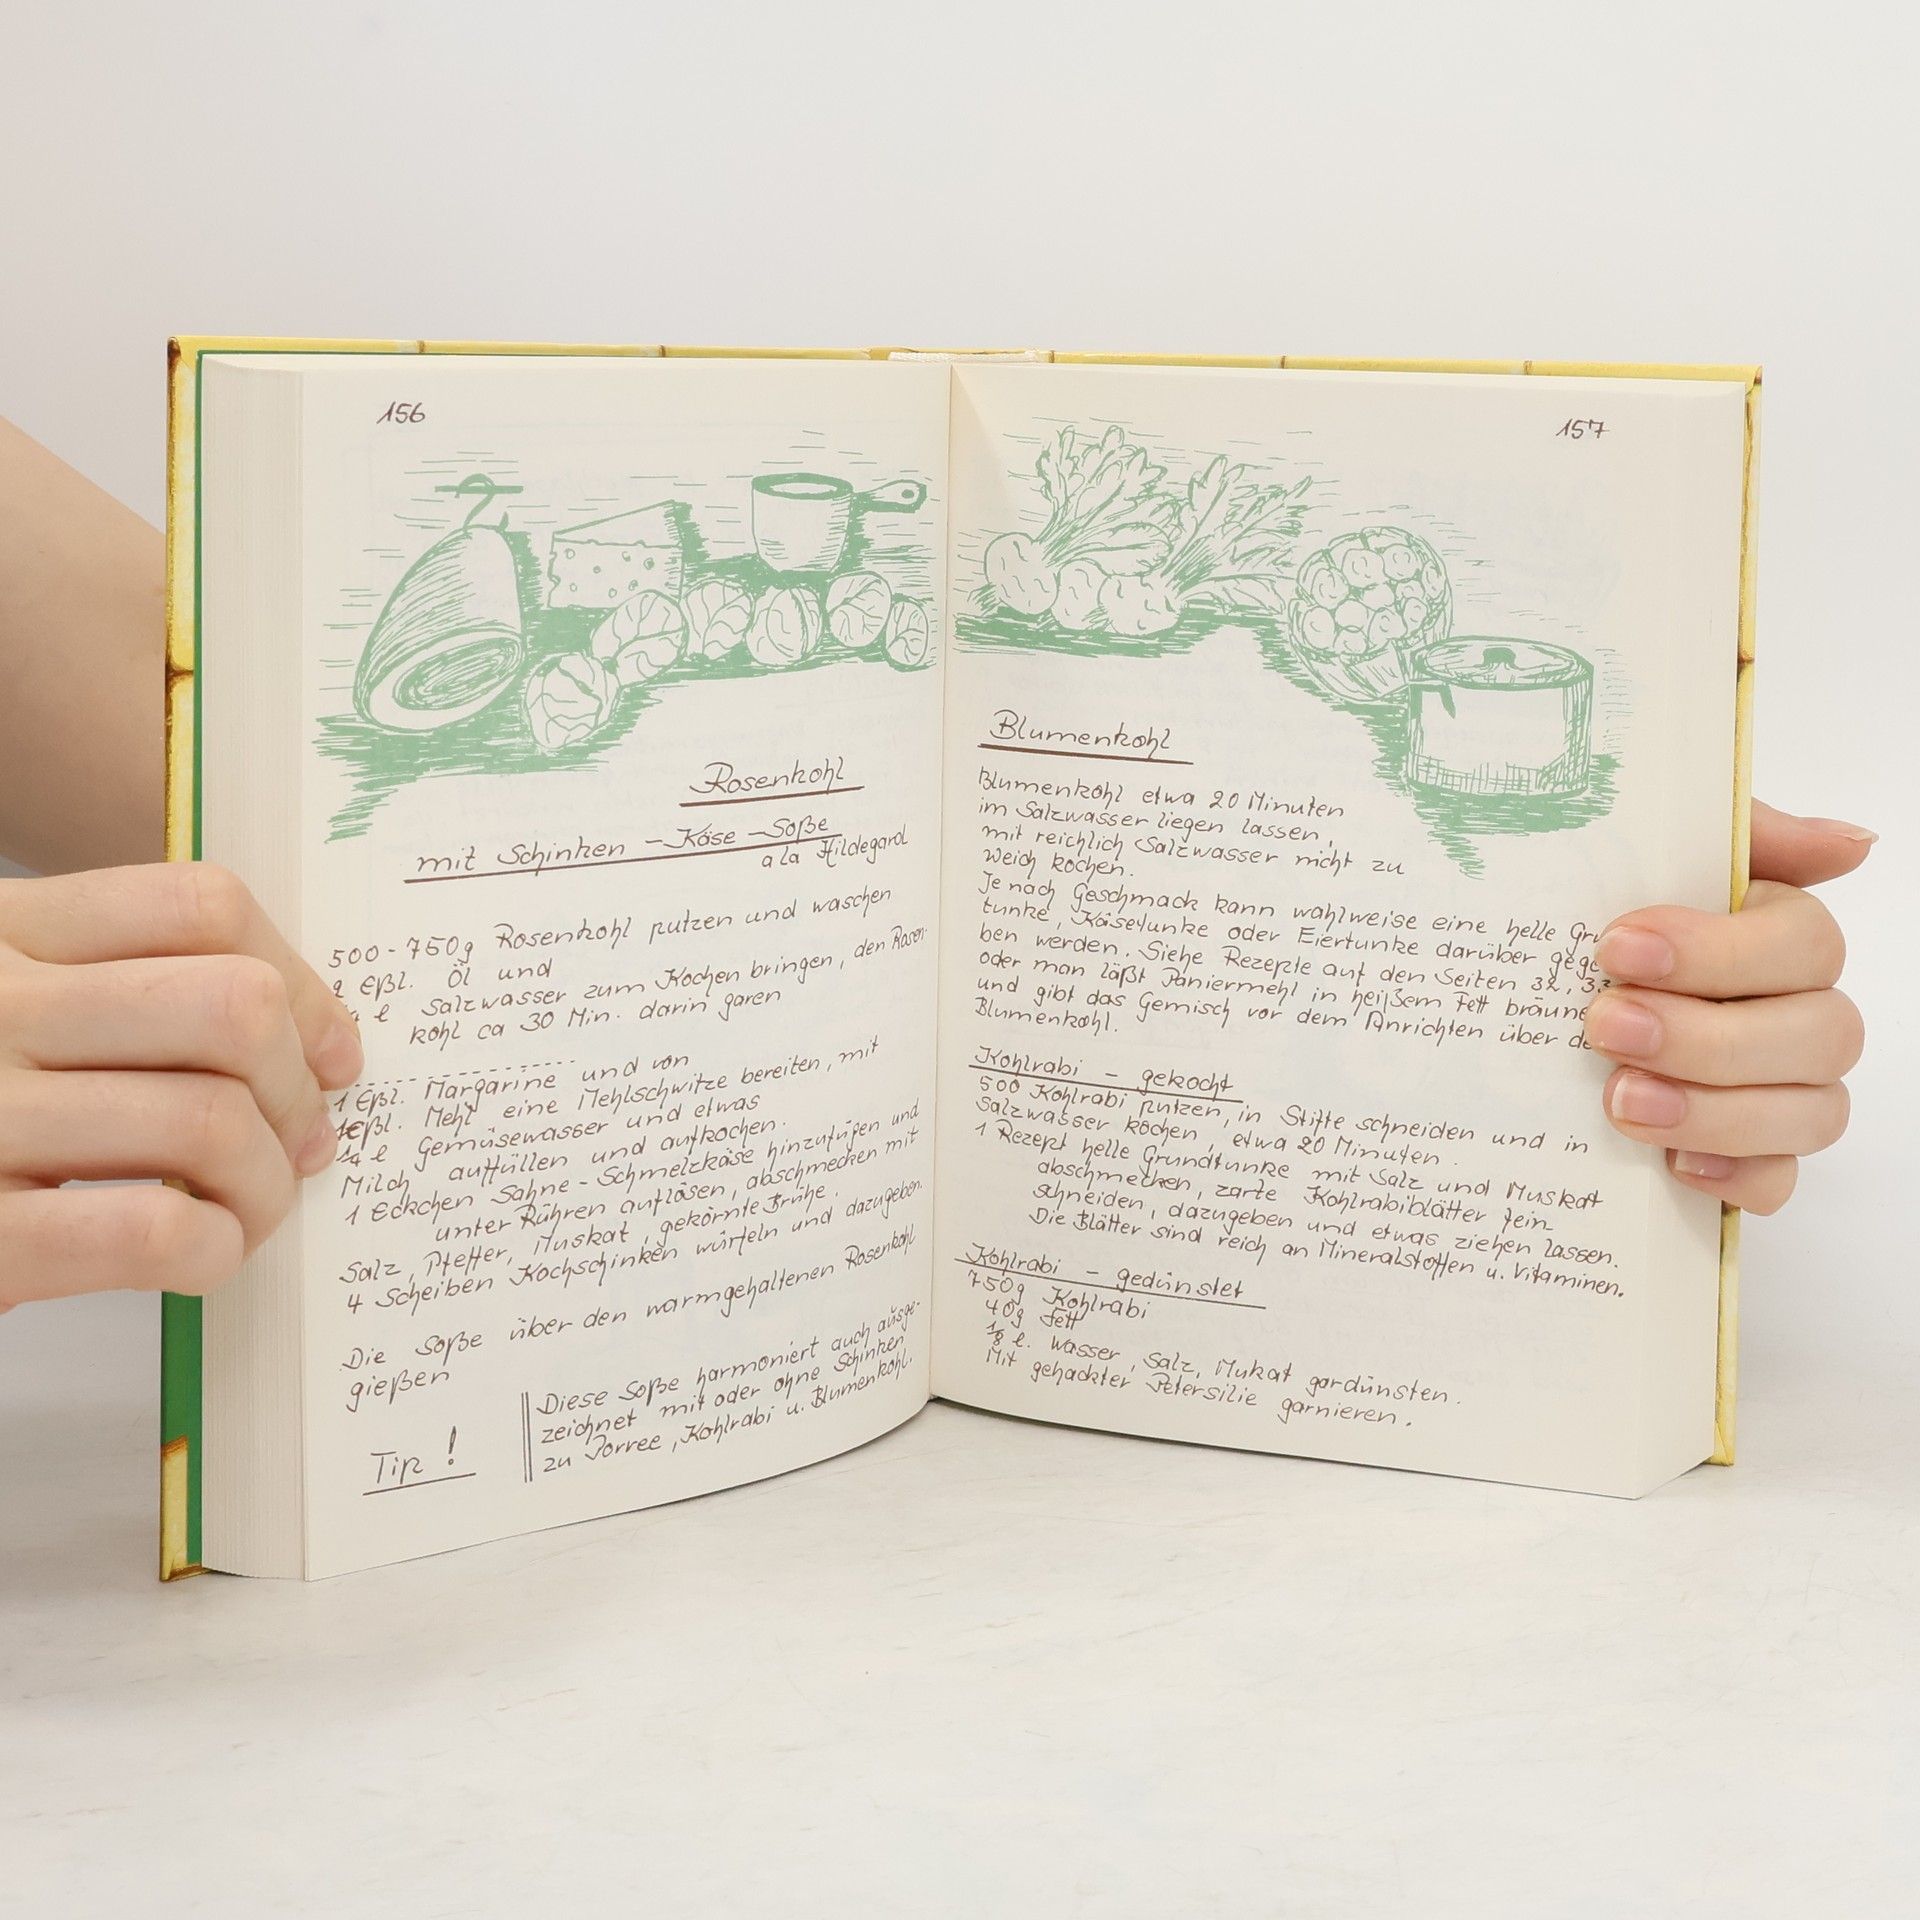 156
Rosenkohl
mit Schinken - Käse - Soße
a la Hildegard
500 - 750g Rosenkohl putzen und waschen
2 Eßl. Öl und
l Salzwasser zum Kochen bringen, den Rosen-
kohl ca 30 Min. darin garen
1 Eßl. Margarine und von
1 Eßl. Mehl eine Mehlschwitze bereiten, mit
1/4 l Gemüsewasser und etwas
Milch auffüllen und aufkochen.
1 Eckchen Sahne - Schmelzkäse hinzufügen und
unter Rühren auflösen, abschmecken mit
Salz, Pfeffer, Muskat, gekörnte Brühe.
4 Scheiben Kochschinken würfeln und dazugeben.
Die Soße über den warmgehaltenen Rosenkohl
gießen
Tip!
Diese Soße harmoniert auch ausge-
zeichnet mit oder ohne Schinken
zu Porree, Kohlrabi u. Blumenkohl.
157
Blumenkohl
Blumenkohl etwa 20 Minuten
im Salzwasser liegen lassen,
mit reichlich Salzwasser nicht zu
weich kochen.
Je nach Geschmack kann wahlweise eine helle
tunke, Käsetunke oder Eiertunke darüber gege
ben werden. Siehe Rezepte auf den Seiten 32, 33
oder man läßt Paniermehl in heißem Fett bräune
und gibt das Gemisch vor dem Anrichten über de
Blumenkohl.
Kohlrabi - gekocht
500 Kohlrabi putzen, in Stifte schneiden und in
Salzwasser kochen, etwa 20 Minuten.
1 Rezept helle Grundtunke mit Salz und Muskat
abschmecken, zarte Kohlrabiblätter fein
schneiden, dazugeben und etwas ziehen lassen.
Die Blätter sind reich an Mineralstoffen u. Vitaminen.
Kohlrabi - gedünstet
750g Kohlrabi
40g Fett
1/8 l. Wasser, Salz, Mukat gardünsten.
Mit gehackter Petersilie garnieren.